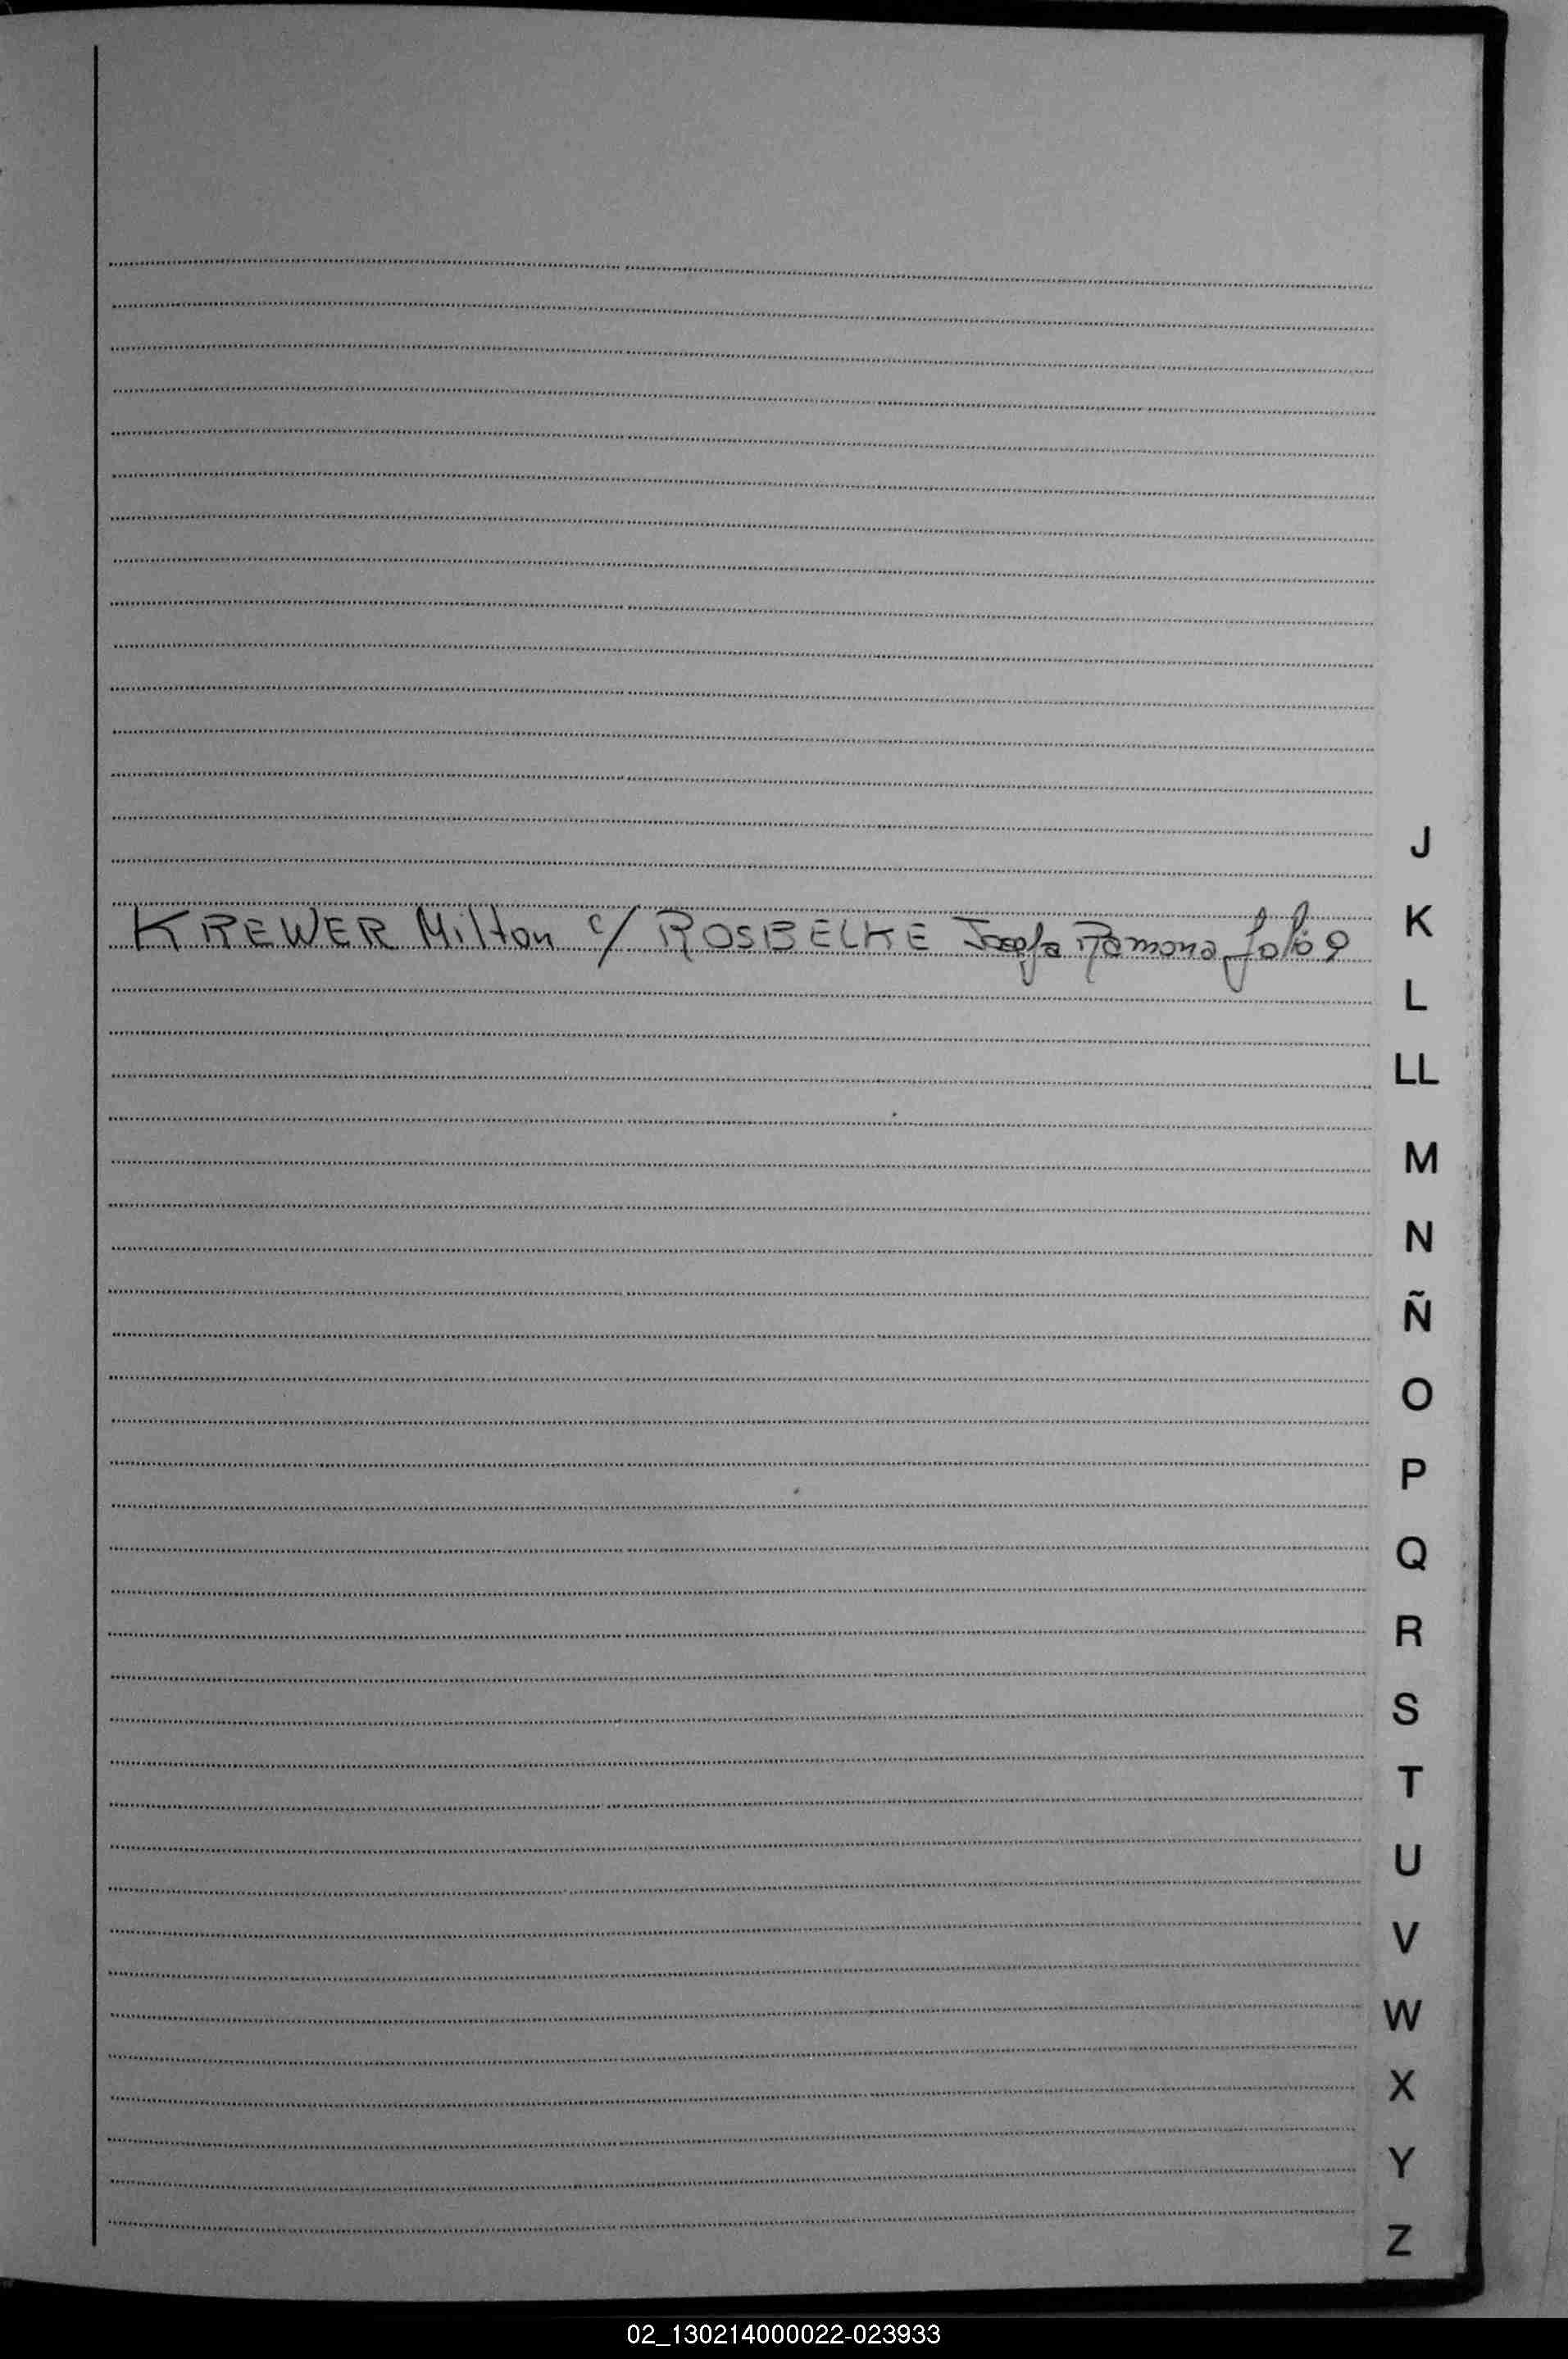 J
KREWER Milton c/ ROSBELKE Josefa Ramona folio 9
K
L
LL
M
N
Ñ
O
P
Q
R
S
T
U
V
W
X
Y
Z
02_130214000022-023933